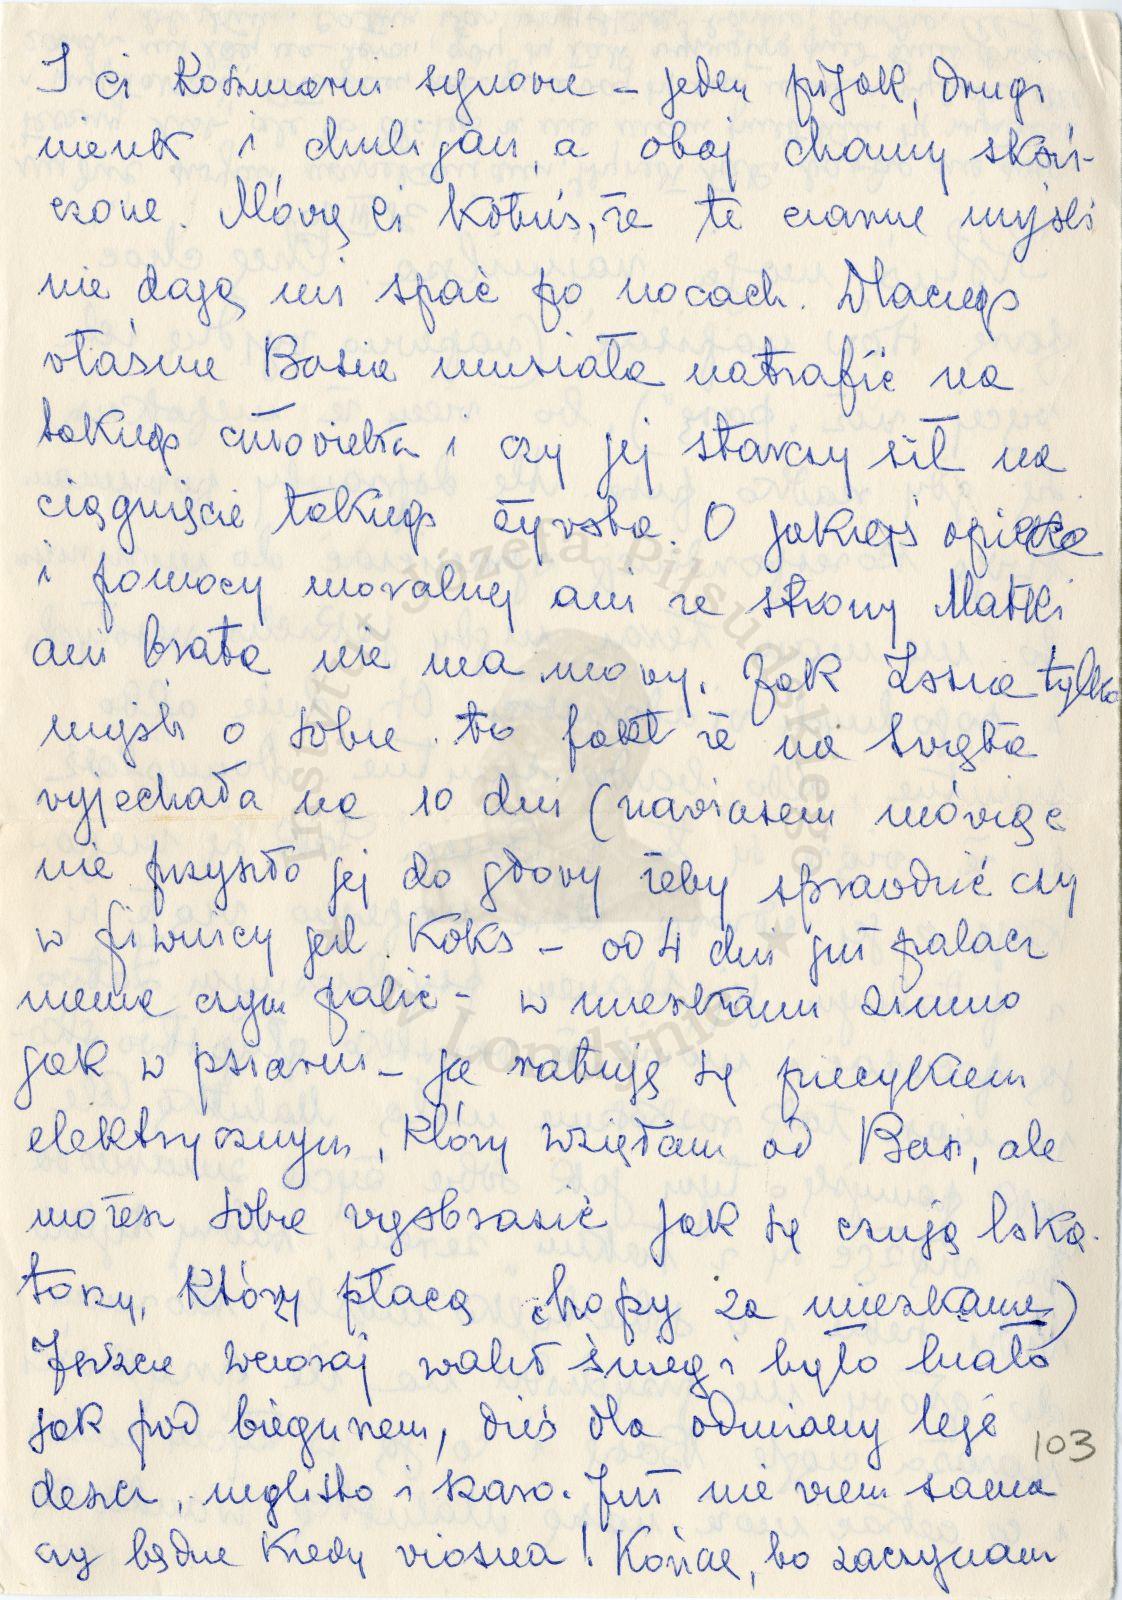 I ci koszmarni synowie – jeden pijak, drugi
nieuk i chuligan, a obaj chamy skoń-
czone. Mówię Ci Kotuś, że te czarne myśli
nie dają mi spać po nocach. Dlaczego
właśnie Basia musiała natrafić na
takiego człowieka i czy jej starczy sił na
ciągnięcie takiego żywota. O jakiejś opiece
i pomocy moralnej ani ze strony Matki
ani brata nie ma mowy. Jak Zosia tylko
myśli o sobie to fakt że na święta
wyjechała na 10 dni (nawiasem mówiąc
nie przyszło jej do głowy żeby sprawdzić czy
w piwnicy jest koks – od 4 dni już palacz
niema czym palić – w mieszkaniu zimno
jak w psiarni – ja ratuję się piecykiem
elektrycznym, który wzięłam od Basi, ale
możesz sobie wyobrazić jak się czują loka-
torzy, którzy płacą chopy za mieszkanie)
Jeszcze wczoraj walił śnieg i było biało
jak pod biegunem, dziś dla odmiany leje
deszcz, mglisto i szaro. Już nie wiem sama
czy będzie kiedy wiosna! Kończę, bo zaczynam
103
Instytut Józefa Piłsudskiego
w Londynie